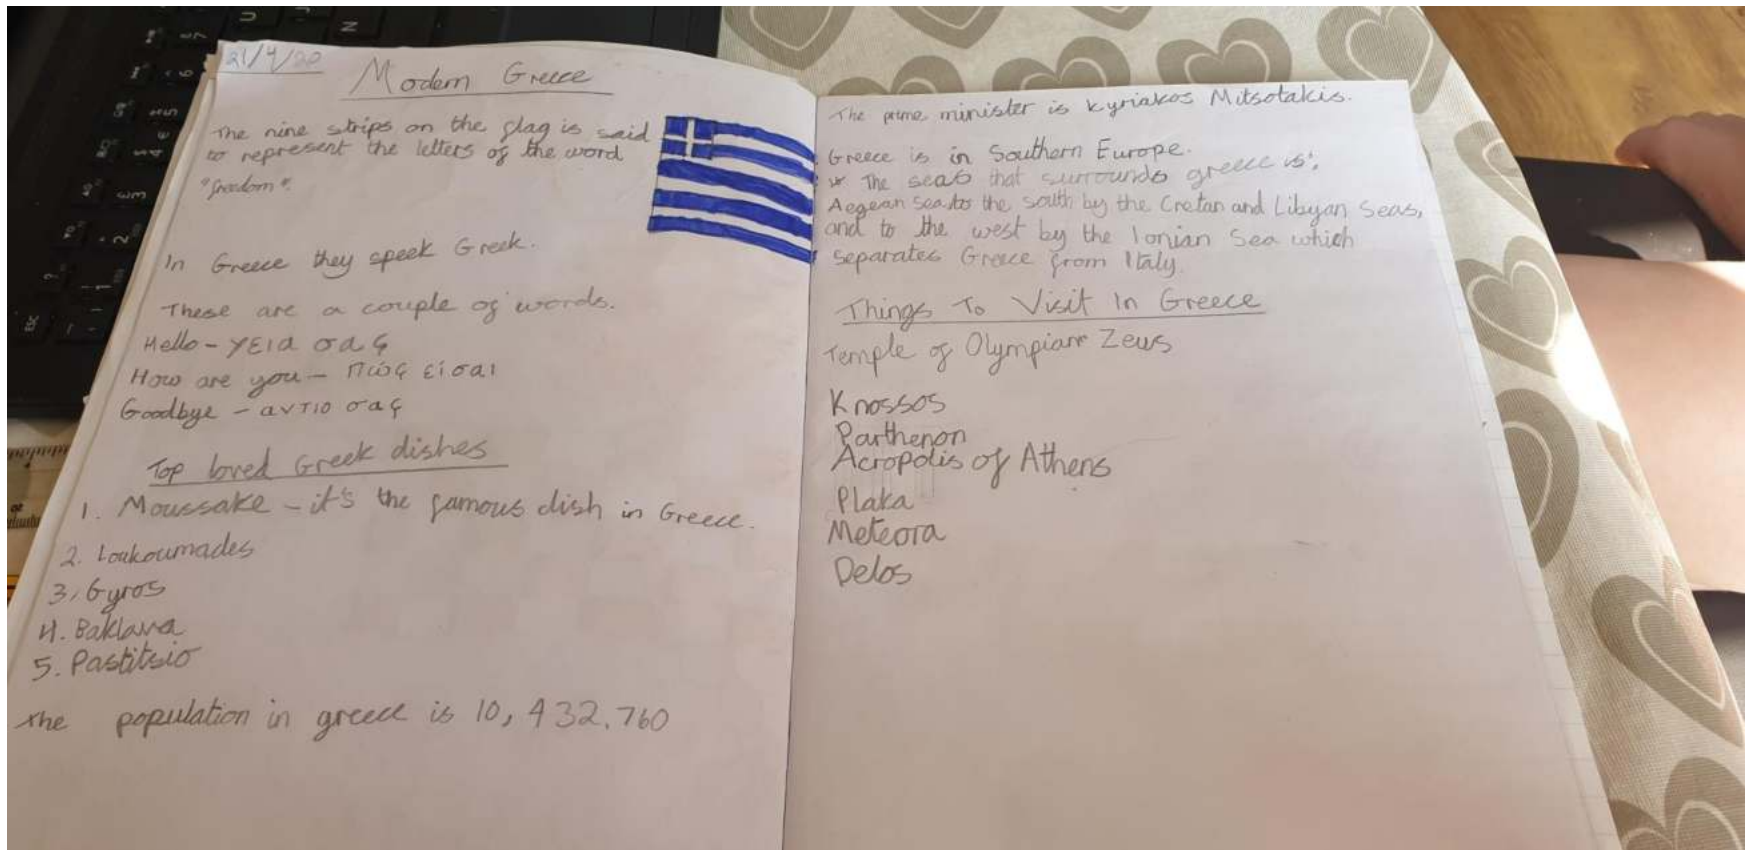 21/4/20
Modern Greece
The nine strips on the flag is said
to represent the letters of the word
"freedom".
In Greece they speek Greek.
These are a couple of words.
Hello - γεια σας
How are you - Πώς είσαι
Goodbye - αντιο σας
Top loved Greek dishes
1. Moussake - it's the famous dish in Greece.
2. Loukoumades
3. Gyros
4. Baklava
5. Pastitsio
The population in greece is 10, 432.760
The prime minister is Kyriakos Mitsotakis.
Greece is in Southern Europe.
The seas that surrounds greece is;
Aegean sea to the south by the Cretan and Libyan Seas,
and to the west by the Ionian Sea which
separates Greece from Italy.
Things To Visit In Greece
Temple of Olympian Zeus
Knossos
Parthenon
Acropolis of Athens
Plaka
Meteora
Delos